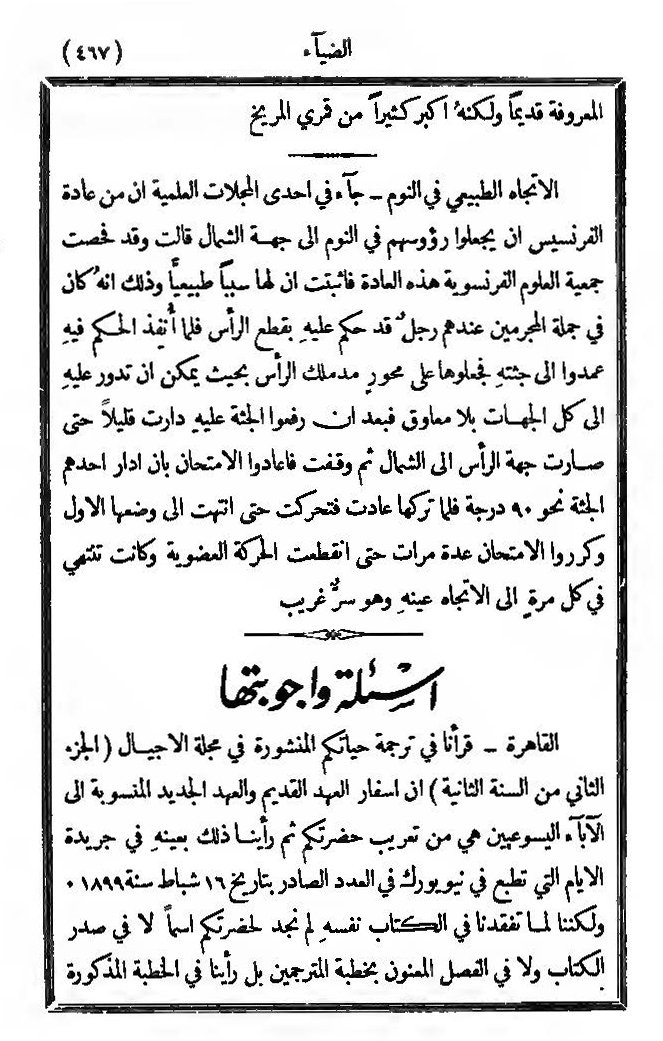 الضيآء
(٤٦٧)
المعروفة قديماً ولكنهُ اكبر كثيراً من قمري المريخ
الاتجاه الطبيعي في النوم ـ جآء في احدى المجلات العلمية ان من عادة
الفرنسيس ان يجعلوا رؤوسهم في النوم الى جهة الشمال قالت وقد فحصت
جمعية العلوم الفرنسوية هذه العادة فاثبتت ان لها سبباً طبيعياً وذلك انهُ كان
في جملة المجرمين عندهم رجلٌ قد حكم عليهِ بقطع الرأس فلما أُنفِذ الحكم فيهِ
عمدوا الى جثتهِ فجعلوها على محورٍ مدملك الرأس بحيث يمكن ان تدور عليهِ
الى كل الجهات بلا معاوق فبعد ان رفعوا الجثة عليهِ دارت قليلاً حتى
صارت جهة الرأس الى الشمال ثم وقفت فاعادوا الامتحان بان ادار احدهم
الجثة نحو ٩٠ درجة فلما تركها عادت فتحركت حتى انتهت الى وضعها الاول
وكرروا الامتحان عدة مرات حتى انقطعت الحركة العضوية وكانت تنتهي
في كل مرةٍ الى الاتجاه عينهِ وهو سرٌّ غريب
اسئلة واجوبتها
القاهرة ـ قرأنا في ترجمة حياتكم المنشورة في مجلة الاجيال (الجزء
الثاني من السنة الثانية) ان اسفار العهد القديم والعهد الجديد المنسوبة الى
الآبآء اليسوعيين هي من تعريب حضرتكم ثم رأينا ذلك بعينهِ في جريدة
الايام التي تطبع في نيويورك في العدد الصادر بتاريخ ١٦ شباط سنة ١٨٩٩ ٠
ولكننا لما تفقدنا في الكتاب نفسهِ لم نجد لحضرتكم اسماً لا في صدر
الكتاب ولا في الفصل المعنون بخطبة المترجمين بل رأينا في الخطبة المذكورة